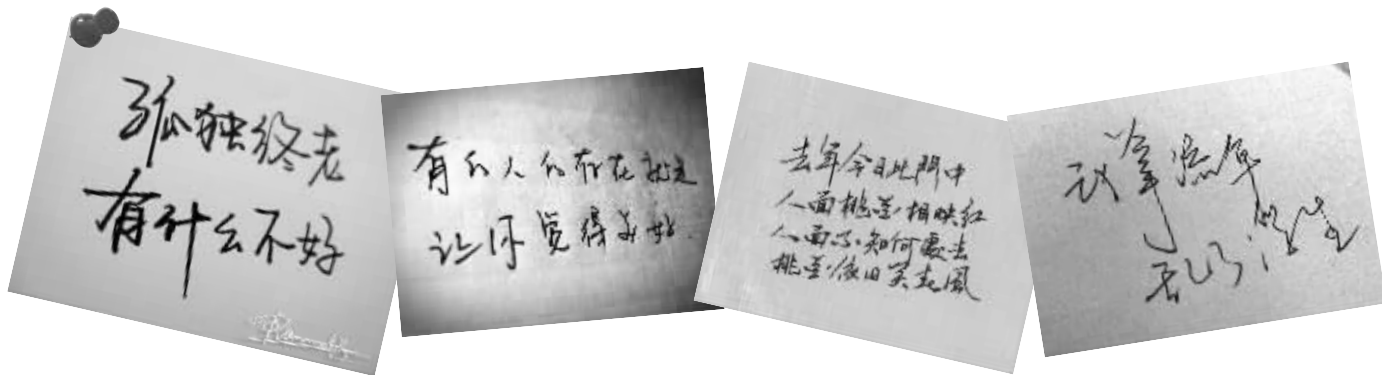 孤独终老
有什么不好
有的人的存在就是
让你觉得美好.
去年今日此門中
人面桃花相映红
人面不知何處去
桃花依旧笑春風
我拿流年
乱了浮生